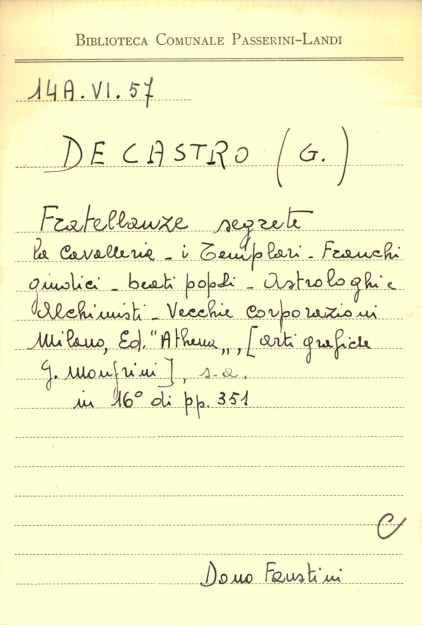 BIBLIOTECA COMUNALE PASSERINI-LANDI
14A.VI.57
DE CASTRO (G.)
Fratellanze segrete
La Cavalleria - i Templari - Franchi
giudici - beati popoli - Astrologhi e
Alchimisti - Vecchie corporazioni
Milano, Ed. "Athena", [arti grafiche
G. Monfrini], s.a.
in 16° di pp. 351
C
Dono Faustini